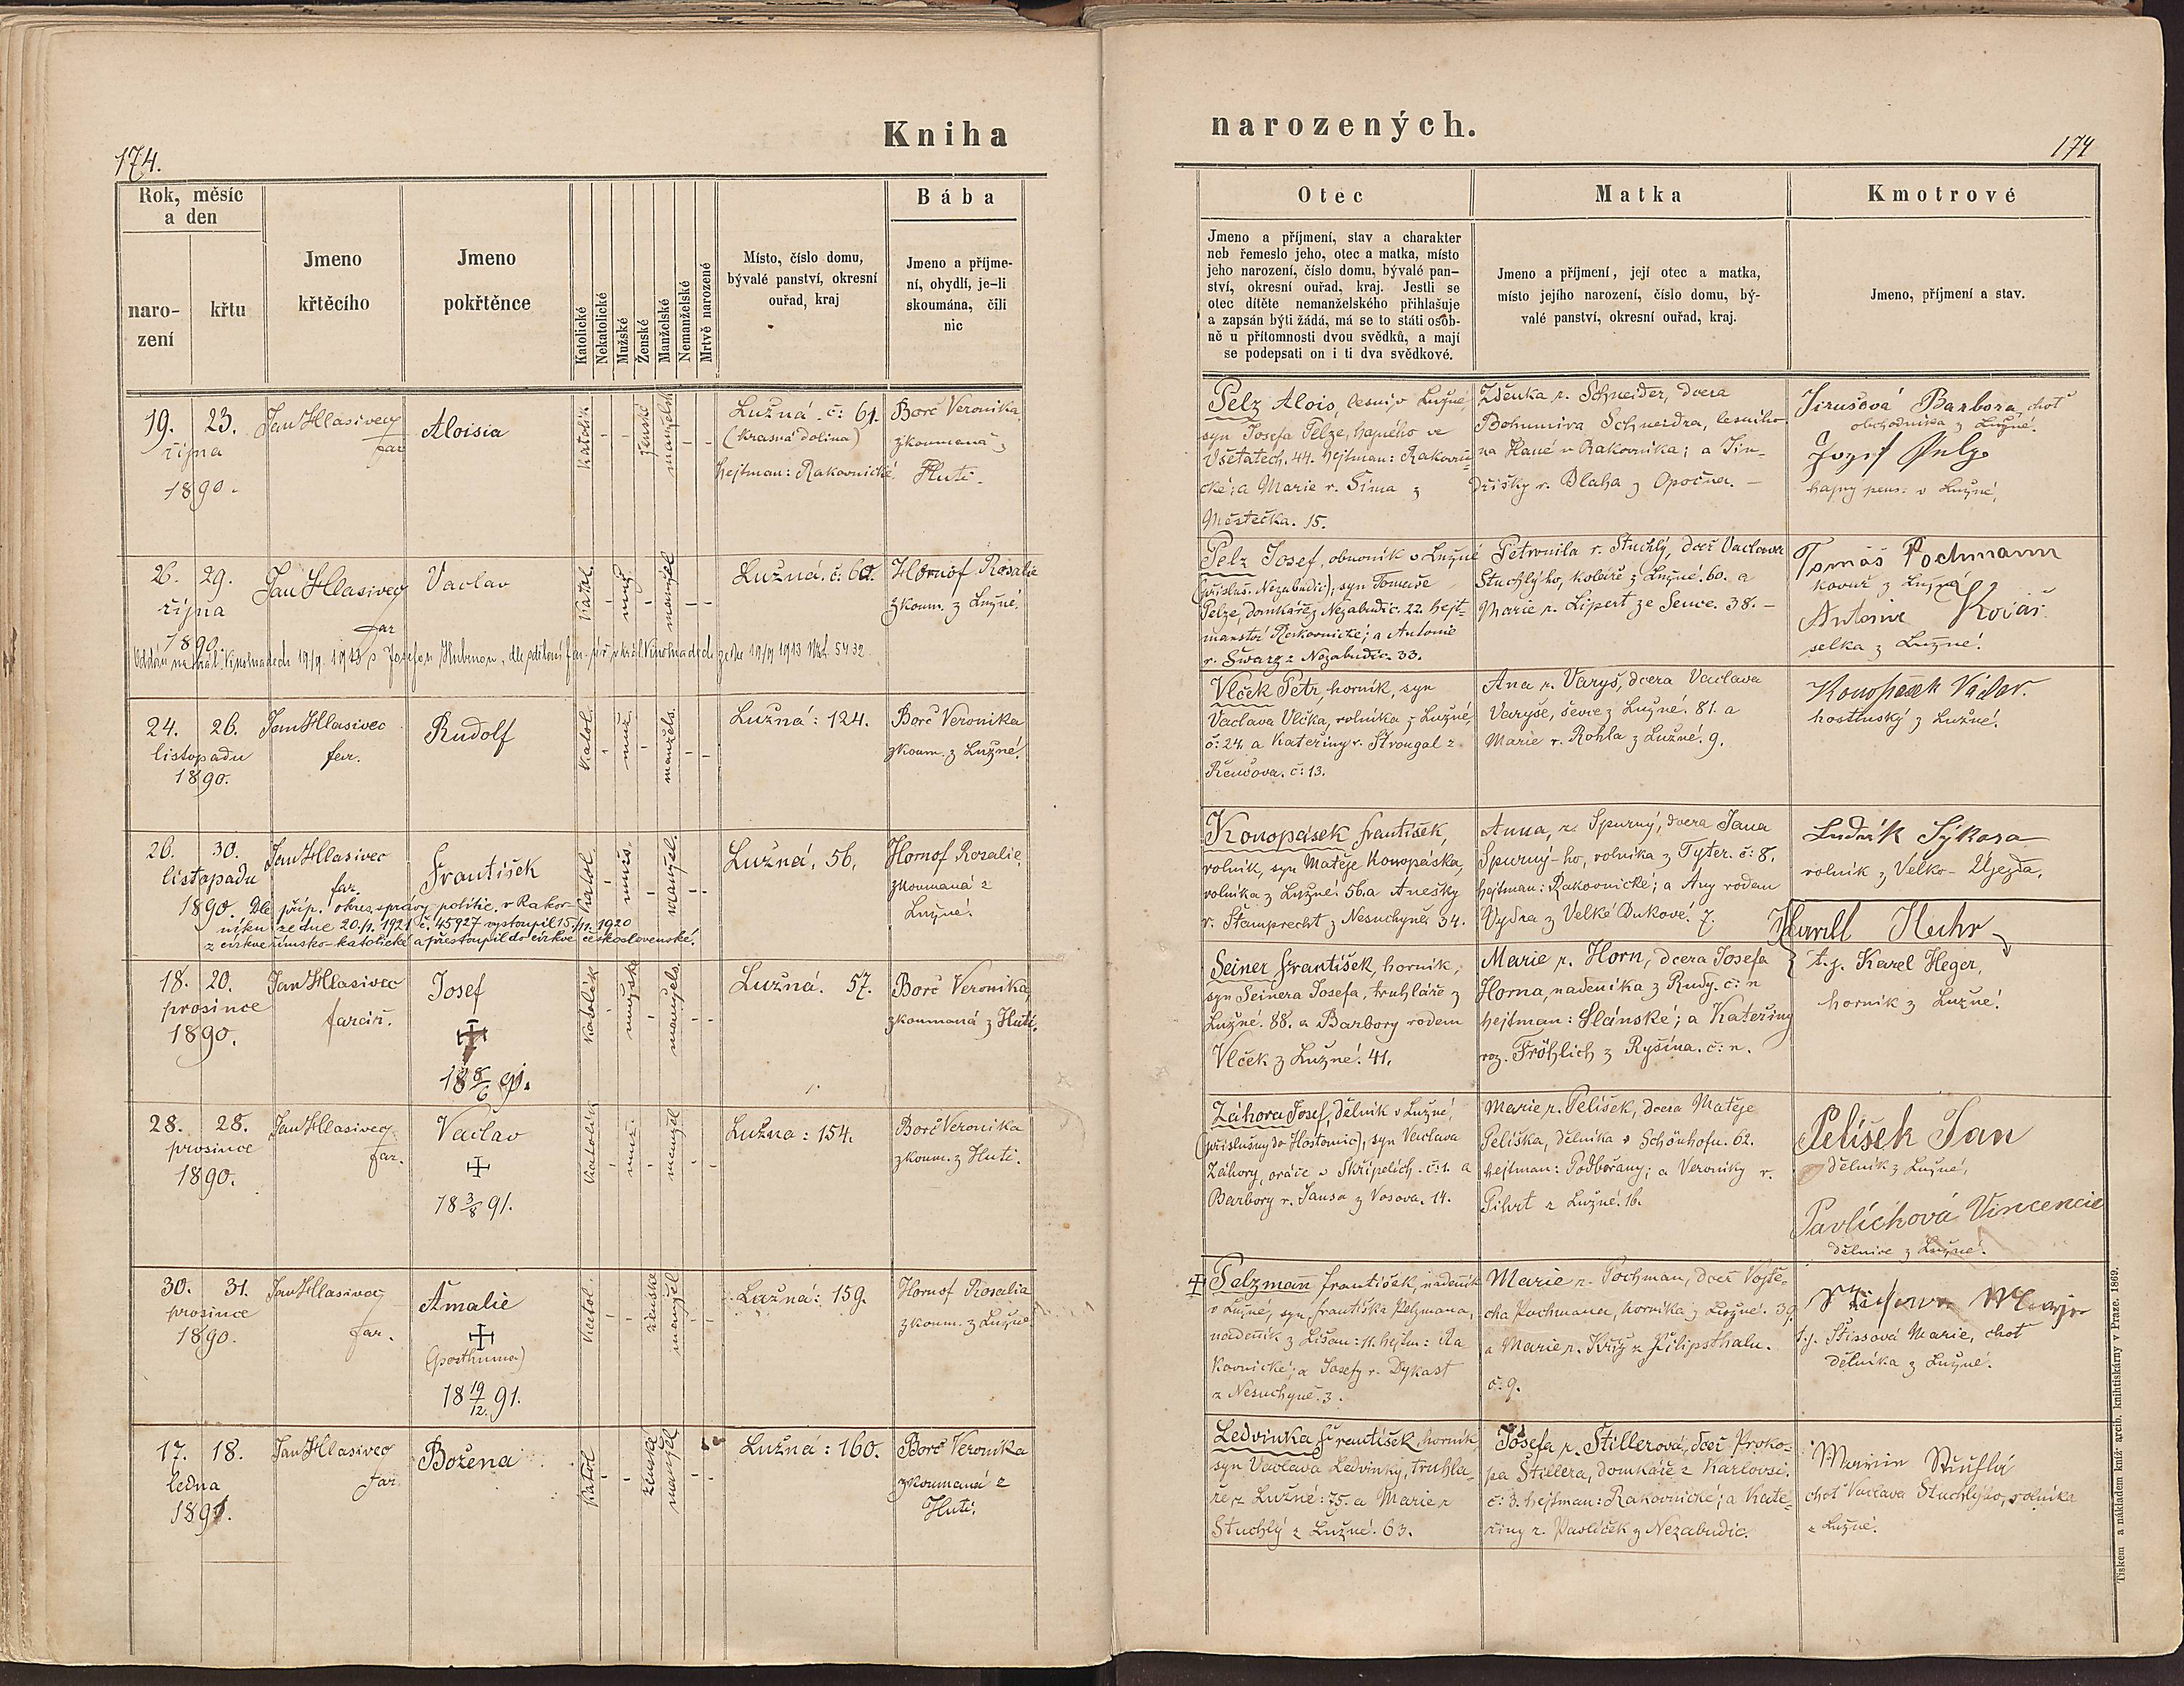 Kniha
174.
Rok, měsíc
a den
naro-
zení
křtu
Jmeno
křtěcího
Jmeno
pokřtěnce
Katolické
Nekatolické
Mužské
Ženské
Manželské
Nemanželské
Mrtvě narozené
Místo, číslo domu,
bývalé panství, okresní
ouřad, kraj
Bába
Jmeno a příjme-
ní, obydlí, je-li
skoumána, čili
nic
19. 23. Jan Hlasivec Aloisia Lužná č: 61. Borč Veronika
října far (Krasná dolina) zkoumaná z
1890. hejtman: Rakovnické Hutí.
26. 29. Jan Hlasivec Vaclav Lužná. č: 60. Hornof Rosalie
října far zkoum. z Lužné.
1890.
24. 26. Jan Hlasivec Rudolf Lužná: 124. Borč Veronika
listopadu far. zkoum. z Lužné.
1890.
26. 30. Jan Hlasivec František Lužná. 56. Hornof Rozalie
listopadu far. zkoumaná z
1890. Dle příp. okres. správy politic. v Rakov- Lužné.
níku ze dne 20./1. 1921 č. 45927 vystoupil 15./11. 1920
z církve římsko-katolické a přestoupil do církve československé.
18. 20. Jan Hlasivec Josef Lužná. 57. Borč Veronika,
prosince farář. zkoumaná z Hutí.
1890.
18 8/6 91.
28. 28. Jan Hlasivec Vaclav Lužna: 154. Borč Veronika
prosince far. zkoum. z Hutí.
1890.
18 3/8 91.
30. 31. Jan Hlasivec Amalie Lužná: 159. Hornof Rosalia
prosince far. zkoum. z Lužné
1890. (posthuma)
18 19/12. 91.
17. 18. Jan Hlasivec Božena Lužná: 160. Borč Veronika
ledna far. zkoumaná z
1891. Hutí.
narozených.
174
Otec
Jmeno a příjmení, stav a charakter
neb řemeslo jeho, otec a matka, místo
jeho narození, číslo domu, bývalé pan-
ství, okresní ouřad, kraj. Jestli se
otec dítěte nemanželského přihlašuje
a zapsán býti žádá, má se to státi osob-
ně u přítomnosti dvou svědků, a mají
se podepsati on i ti dva svědkové.
Matka
Jmeno a příjmení, její otec a matka,
místo jejího narození, číslo domu, bý-
valé panství, okresní ouřad, kraj.
Kmotrové
Jmeno, příjmení a stav.
Pelz Alois, lesní v Lužné,
syn Josefa Pelze, hajného ve
Všetatech. 44. hejtman: Rakovni-
cké; a Marie r. Šíma z
Městečka. 15.
Zdenka r. Schneider, dcera
Bohumira Schneidra, lesního
na Hané v Rakovníka; a Jin-
dřišky r. Blaha z Opočna. -
Jirušová Barbora, choť
obchodníka z Lužné.
Josef Pelz
hajný pens. v Lužné.
Pelz Josef, obuvník v Lužné
(přísluš. Nezabudic), syn Tomaše
Pelze, domkáře z Nezabudic. 22. hejt-
manství Rakovnické; a Antonie
r. Švarz z Nezabudic. 33.
Petronila r. Stuchlý, dceř Vaclava
Stuchlýho, koláře z Lužné. 60. a
Marie r. Lipert ze Sence. 38. -
Tomáš Pochmann
kovář z Lužné
Antonie Kovář
selka z Lužné.
Vlček Petr, horník, syn
Vaclava Vlčka, rolníka z Lužné
č: 24. a Kateřiny r. Strougal z
Řenčova. č: 13.
Ana r. Varyš, dcera Vaclava
Varyše, ševce z Lužné. 81. a
Marie r. Rohla z Lužné. 9.
Konopásek Václav.
hostinský z Lužné.
Konopásek František,
rolník, syn Matěje Konopáska,
rolníka z Lužné. 56. a Anešky
r. Štamprecht z Nesuchyně 34.
Anna, r. Spurný, dcera Jana
Spurný-ho, rolníka z Tyter. č: 8.
hejtman: Rakovnické; a Any rodem
Vydra z Velké Bukové. 7.
Ludvík Sýkora
rolník z Velko-Ujezda.
Seiner František, horník,
syn Seinera Josefa, truhláře z
Lužné. 88. a Barbory rodem
Vlček z Lužné. 41.
Marie r. Horn, dcera Josefa
Horna, nádeníka z Rudy. č: n
hejtman: Slánské; a Kateřiny
roz. Fröhlich z Ryšína. č: n.
t.j. Karel Heger,
horník z Lužné.
Záhora Josef, dělník v Lužné
(příslušný do Hostomic), syn Vaclava
Záhory, oráče v Skřipelích. č: 1. a
Barbory r. Jansa z Vosova. 14.
Marie r. Pelíšek, dcera Matěje
Pelíška, dělníka v Schönhofu. 62.
hejtman: Podbořany; a Veroniky r.
Pilvt z Lužné. 16.
Pelíšek Jan
dělník z Lužné,
Pavlíchová Vincencie
dělnice z Lužné.
Pelzman František, nádeník
v Lužné, syn Františka Pelzmana,
nádeník z Lišan: 11. hejtm: Ra
kovnické; a Josefy r. Dykast
z Nesuchyně. 3.
Marie r. Pochman, dceř Vojtě-
cha Pochmana, horníka z Lužné. 39.
a Marie r. Kříž z Filipsthalu.
č: 9.
t.j. Štissová Marie, choť
dělníka z Lužné.
Ledvinka František, horník
syn Vaclava Ledvinky, truhla-
ře z Lužné: 75. a Marie r
Stuchlý z Lužné. 63.
Josefa r. Štillerová, dceř Proko-
pa Štillera, domkáře z Karlovsi.
č: 3. hejtman: Rakovnické; a Kate-
řiny r. Pavlíček z Nezabudic.
Marie Stuchlá
choť Vaclava Stuchlýho, rolníka
z Lužné.
Tiskem a nákladem kníž. arcib. knihtiskárny v Praze. 1869.